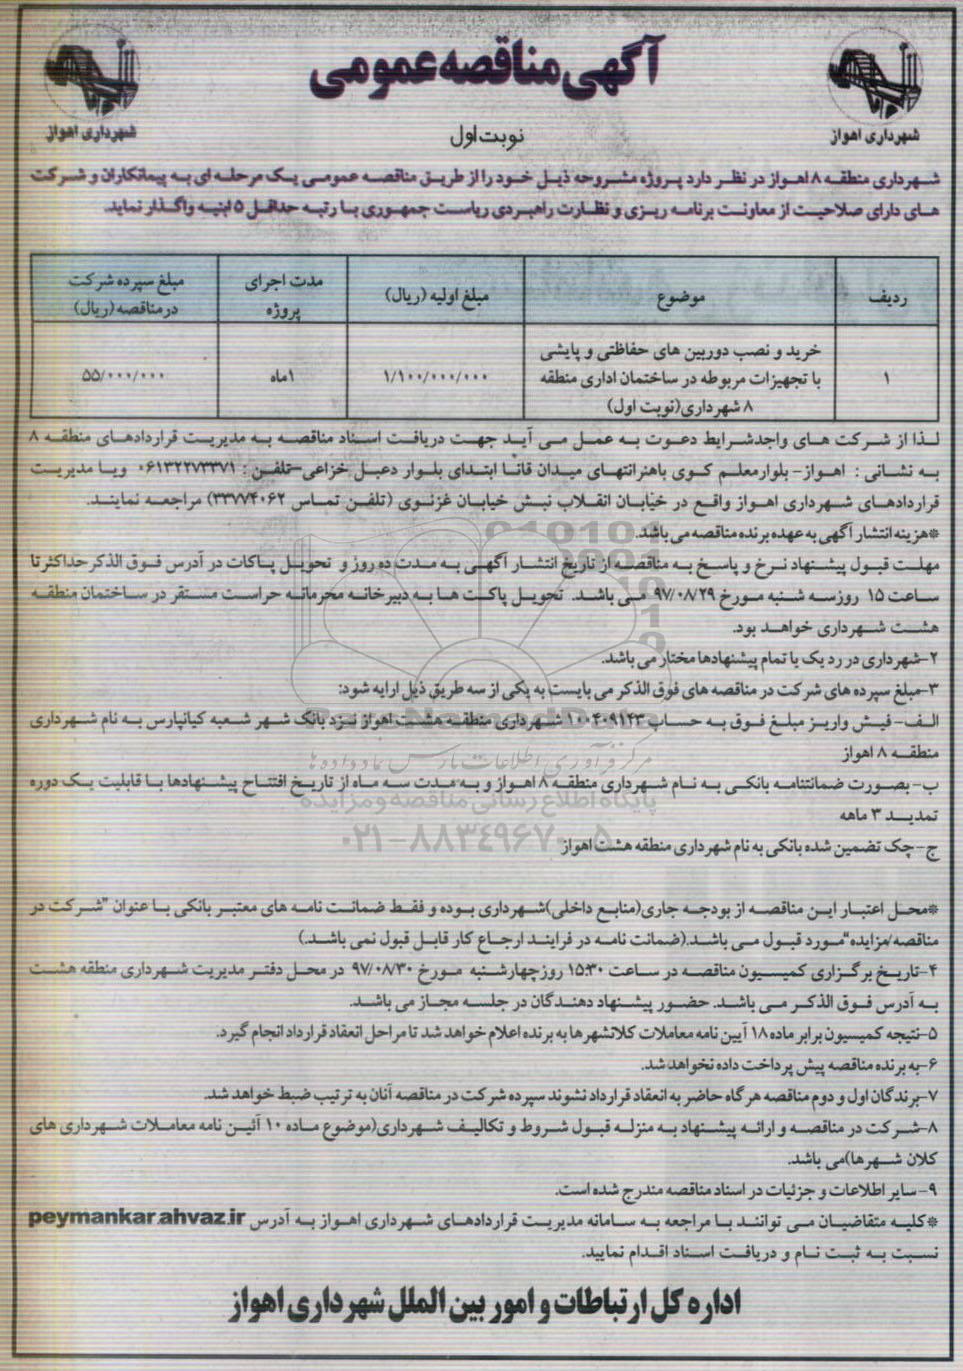 آگهی مناقصه عمومی
شهرداری اهواز
شهرداری اهواز
نوبت اول
شهرداری منطقه ۸ اهواز در نظر دارد پروژه مشروحه ذیل خود را از طریق مناقصه عمومی یک مرحله ای به پیمانکاران و شرکت
های دارای صلاحیت از معاونت برنامه ریزی و نظارت راهبردی ریاست جمهوری با رتبه حداقل ۵ ابنیه واگذار نماید.
ردیف موضوع مبلغ اولیه (ریال) مدت اجرای پروژه مبلغ سپرده شرکت در مناقصه (ریال)
۱ خرید و نصب دوربین های حفاظتی و پایشی با تجهیزات مربوطه در ساختمان اداری منطقه ۸ شهرداری(نوبت اول) ۱/۱۰۰/۰۰۰/۰۰۰ ۱ماه ۵۵/۰۰۰/۰۰۰
لذا از شرکت های واجدشرایط دعوت به عمل می آید جهت دریافت اسناد مناقصه به مدیریت قراردادهای منطقه ۸
به نشانی : اهواز- بلوارمعلم کوی باهنرانتهای میدان قاآنا ابتدای بلوار دعبل خزاعی-تلفن : ۰۶۱۳۲۲۷۳۳۷۱ ویا مدیریت
قراردادهای شهرداری اهواز واقع در خیابان انقلاب نبش خیابان غزنوی (تلفن تماس ۳۳۷۷۴۰۶۲) مراجعه نمایند.
*هزینه انتشار آگهی به عهده برنده مناقصه می باشد.
مهلت قبول پیشنهاد نرخ و پاسخ به مناقصه از تاریخ انتشار آگهی به مدت ده روز و تحویل پاکات در آدرس فوق الذکر حداکثر تا
ساعت ۱۵ روزسه شنبه مورخ ۹۷/۰۸/۲۹ می باشد. تحویل پاکت ها به دبیرخانه محرمانه حراست مستقر در ساختمان منطقه
هشت شهرداری خواهد بود.
۲-شهرداری در رد یک یا تمام پیشنهادها مختار می باشد.
۳-مبلغ سپرده های شرکت در مناقصه های فوق الذکر می بایست به یکی از سه طریق ذیل ارایه شود:
الف- فیش واریز مبلغ فوق به حساب ۱۰۰۴۰۹۱۴۳ شهرداری منطقه هشت اهواز نزد بانک شهر شعبه کیانپارس به نام شهرداری
منطقه ۸ اهواز
ب- بصورت ضمانتنامه بانکی به نام شهرداری منطقه ۸ اهواز و به مدت سه ماه از تاریخ افتتاح پیشنهادها با قابلیت یک دوره
تمدید ۳ ماهه
ج-چک تضمین شده بانکی به نام شهرداری منطقه هشت اهواز
*محل اعتبار این مناقصه از بودجه جاری(منابع داخلی)شهرداری بوده و فقط ضمانت نامه های معتبر بانکی با عنوان "شرکت در
مناقصه/مزایده"مورد قبول می باشد.(ضمانت نامه در فرایند ارجاع کار قابل قبول نمی باشد.)
۴-تاریخ برگزاری کمیسیون مناقصه در ساعت ۱۵:۳۰ روزچهارشنبه مورخ ۹۷/۰۸/۳۰ در محل دفتر مدیریت شهرداری منطقه هشت
به آدرس فوق الذکر می باشد. حضور پیشنهاد دهندگان در جلسه مجاز می باشد.
۵-نتیجه کمیسیون برابر ماده ۱۸ آیین نامه معاملات کلانشهرها به برنده اعلام خواهد شد تا مراحل انعقاد قرارداد انجام گیرد.
۶-به برنده مناقصه پیش پرداخت داده نخواهد شد.
۷-برندگان اول و دوم مناقصه هرگاه حاضر به انعقاد قرارداد نشوند سپرده شرکت در مناقصه آنان به ترتیب ضبط خواهد شد.
۸-شرکت در مناقصه و ارائه پیشنهاد به منزله قبول شروط و تکالیف شهرداری(موضوع ماده ۱۰ آئین نامه معاملات شهرداری های
کلان شهرها)می باشد.
۹-سایر اطلاعات و جزئیات در اسناد مناقصه مندرج شده است.
*کلیه متقاضیان می توانند با مراجعه به سامانه مدیریت قراردادهای شهرداری اهواز به آدرس peymankar.ahvaz.ir
نسبت به ثبت نام و دریافت اسناد اقدام نمایید.
اداره کل ارتباطات و امور بین الملل شهرداری اهواز
مرکز فرآوری اطلاعات پارس نماد داده ها
پایگاه اطلاع رسانی مناقصه و مزایده
۰۲۱-۸۸۳۴۹۶۷۰-۵